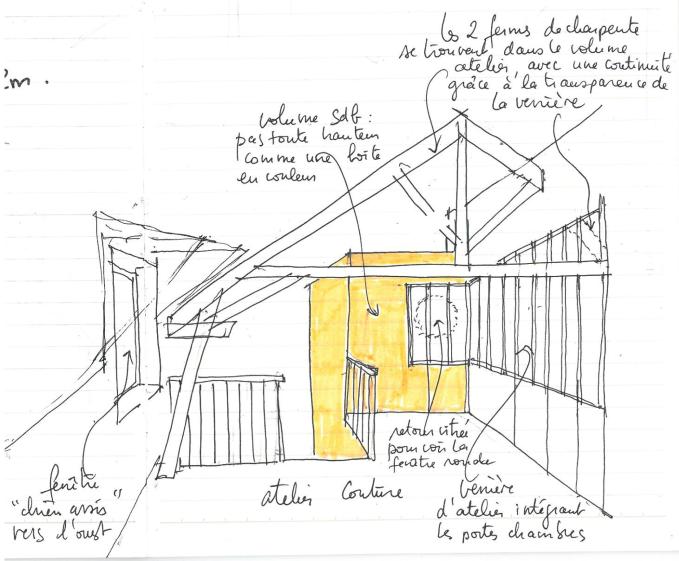 les 2 fermes de charpente
se trouvent dans le volume
atelier, avec une continuité
grâce à la transparence de
la verrière
volume Sdb :
pas toute hauteur
comme une boîte
en couleur
retour vitré
pour voir la
fenêtre ronde
fenêtre
"chien assis"
vers l'ouest
atelier Couture
Verrière
d'atelier intégrant
les portes chambres